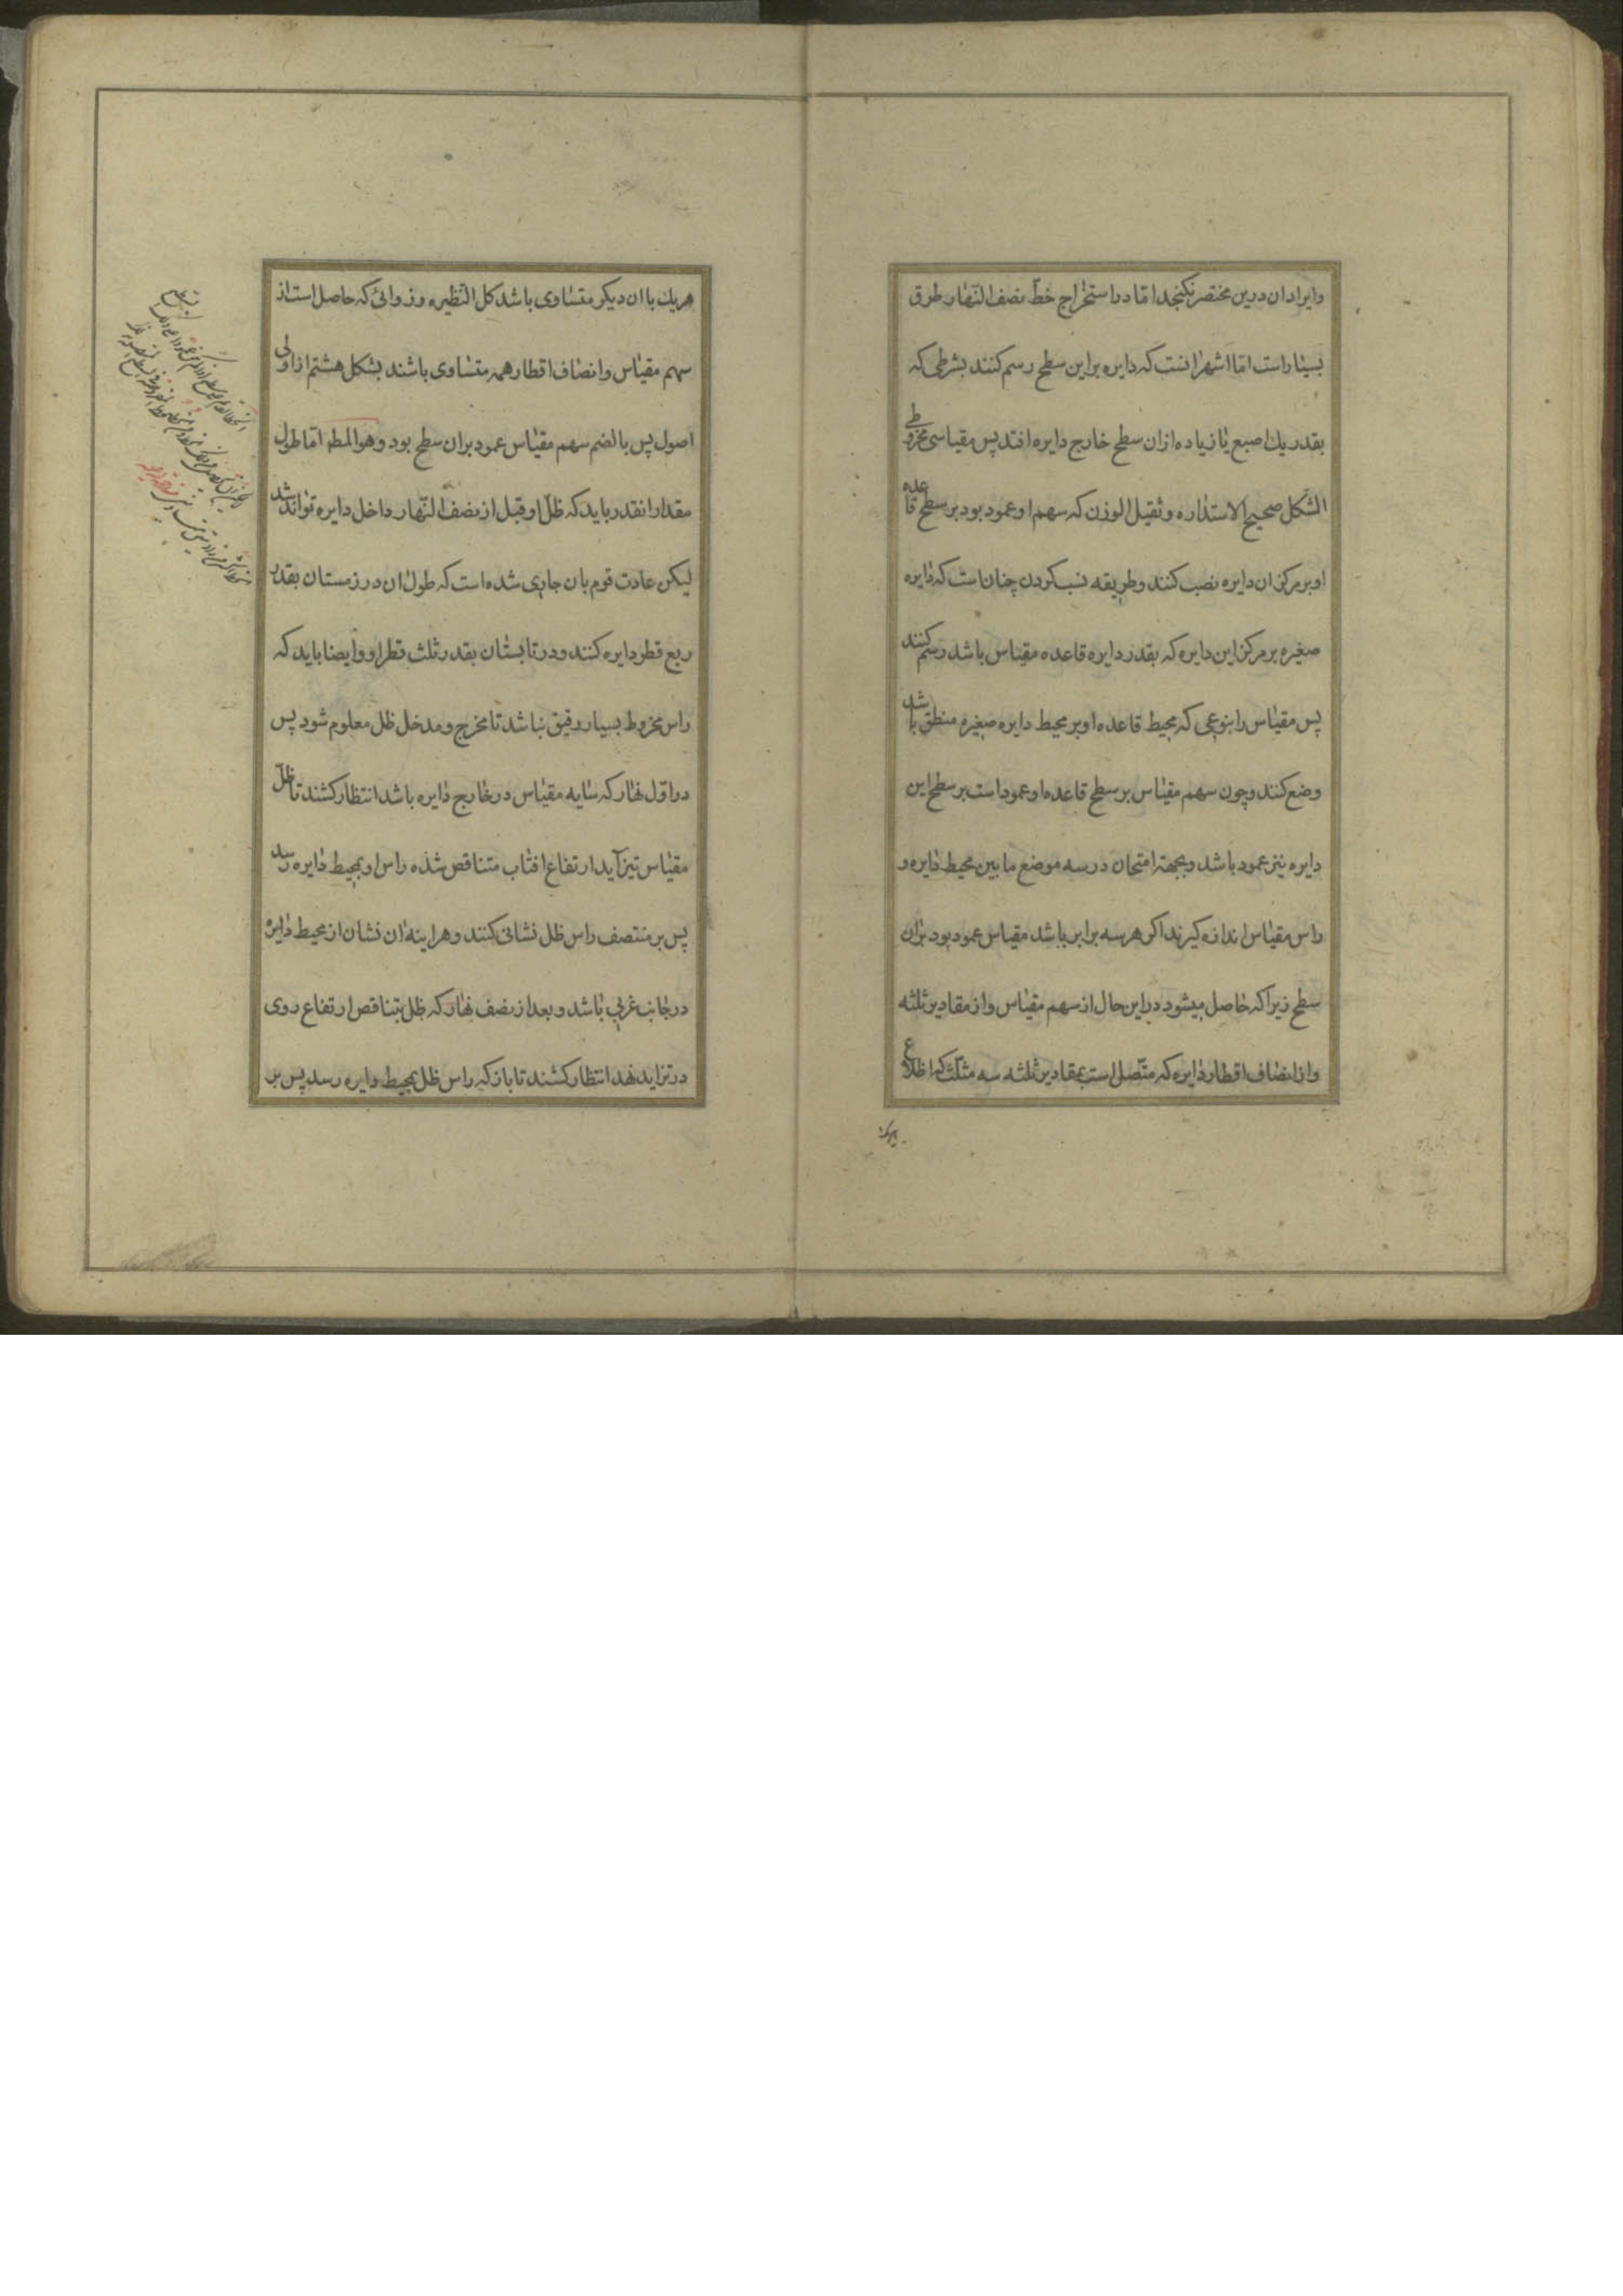 وایراد ان درین مختصر نکنجد اما در استخراج خط نصف النهار طرق
بسیار است اما اشهر انست که دایره براین سطح رسم کنند بشرطی که
بقدر یك اصبع یا زیاده ازان سطح خارج دایره افتد پس مقیاسی مخروطی
الشکل صحیح الاستداره و ثقیل الوزن که سهم او عمود بود بر سطح قاعده
او بر مرکز ان دایره نصب کنند و طریقه نسب کردن چنان است که دایره
صغیره بر مرکز این دایره که بقدر دایره قاعده مقیاس باشد رسم کنند
پس مقیاس را بنوعی که محیط قاعده او بر محیط دایره صغیره منطق باشد
وضع کنند و چون سهم مقیاس بر سطح قاعده او عمود است بر سطح این
دایره نیز عمود باشد و بجهته امتحان در سه موضع ما بین محیط دایره و
راس مقیاس اندازه کیرند اکر هر سه برابر باشد مقیاس عمود بود بران
سطح زیرا که حاصل میشود دراین حال از سهم مقیاس و از مقادیر ثلثه
و از انصاف اقطار دایره که متصل است بمقادیر ثلثه سه مثلث که اضلاع
هریك با ان دیکر متساوی باشد کل النظیره و زوائی که حاصل است از
سهم مقیاس و انصاف اقطار همه متساوی باشند بشکل هشتم از اولی
اصول پس بالضم سهم مقیاس عمود بران سطح بود و هو المط اما طول
مقدار انقدر باید که ظل او قبل از نصف النهار داخل دایره تواند شد
لیکن عادت قوم بان جاری شده است که طول ان در زمستان بقدر
ربع قطر دایره کنند و در تابستان بقدر ثلث قطر او و ایضا باید که
راس مخروط بسیار دقیق نباشد تا مخرج و مدخل ظل معلوم شود پس
در اول نهار که سایه مقیاس در خارج دایره باشد انتظار کشند تا ظل
مقیاس تیز آید ارتفاع افتاب متناقص شده راس او بمحیط دایره رسد
پس بر منتصف راس ظل نشانی کنند و هر اینه ان نشان از محیط دایره
در جانب غربی باشد و بعد از نصف نهار که ظل بتناقص ارتفاع روی
در تزاید نهد انتظار کشند تا باز که راس ظل بمحیط دایره رسد پس بر